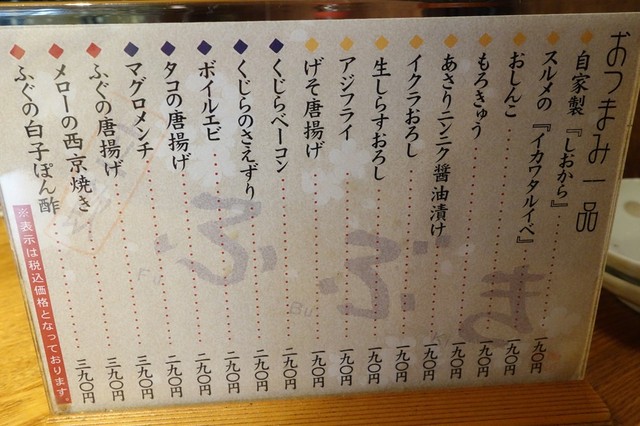 おつまみ一品
自家製『しおから』 一九〇円
スルメの『イカワタルイベ』 一九〇円
おしんこ 一九〇円
もろきゅう 一九〇円
あさりニンニク醤油漬け 一九〇円
イクラおろし 一九〇円
生しらすおろし 一九〇円
アジフライ 一九〇円
げそ唐揚げ 一九〇円
くじらベーコン 二九〇円
くじらのさえずり 二九〇円
ボイルエビ 二九〇円
タコの唐揚げ 二九〇円
マグロメンチ 二九〇円
ふぐの唐揚げ 三九〇円
メローの西京焼き 三九〇円
ふぐの白子ぽん酢 三九〇円
※表示は税込価格となっております。
ふぶき
Fu Bu Ki